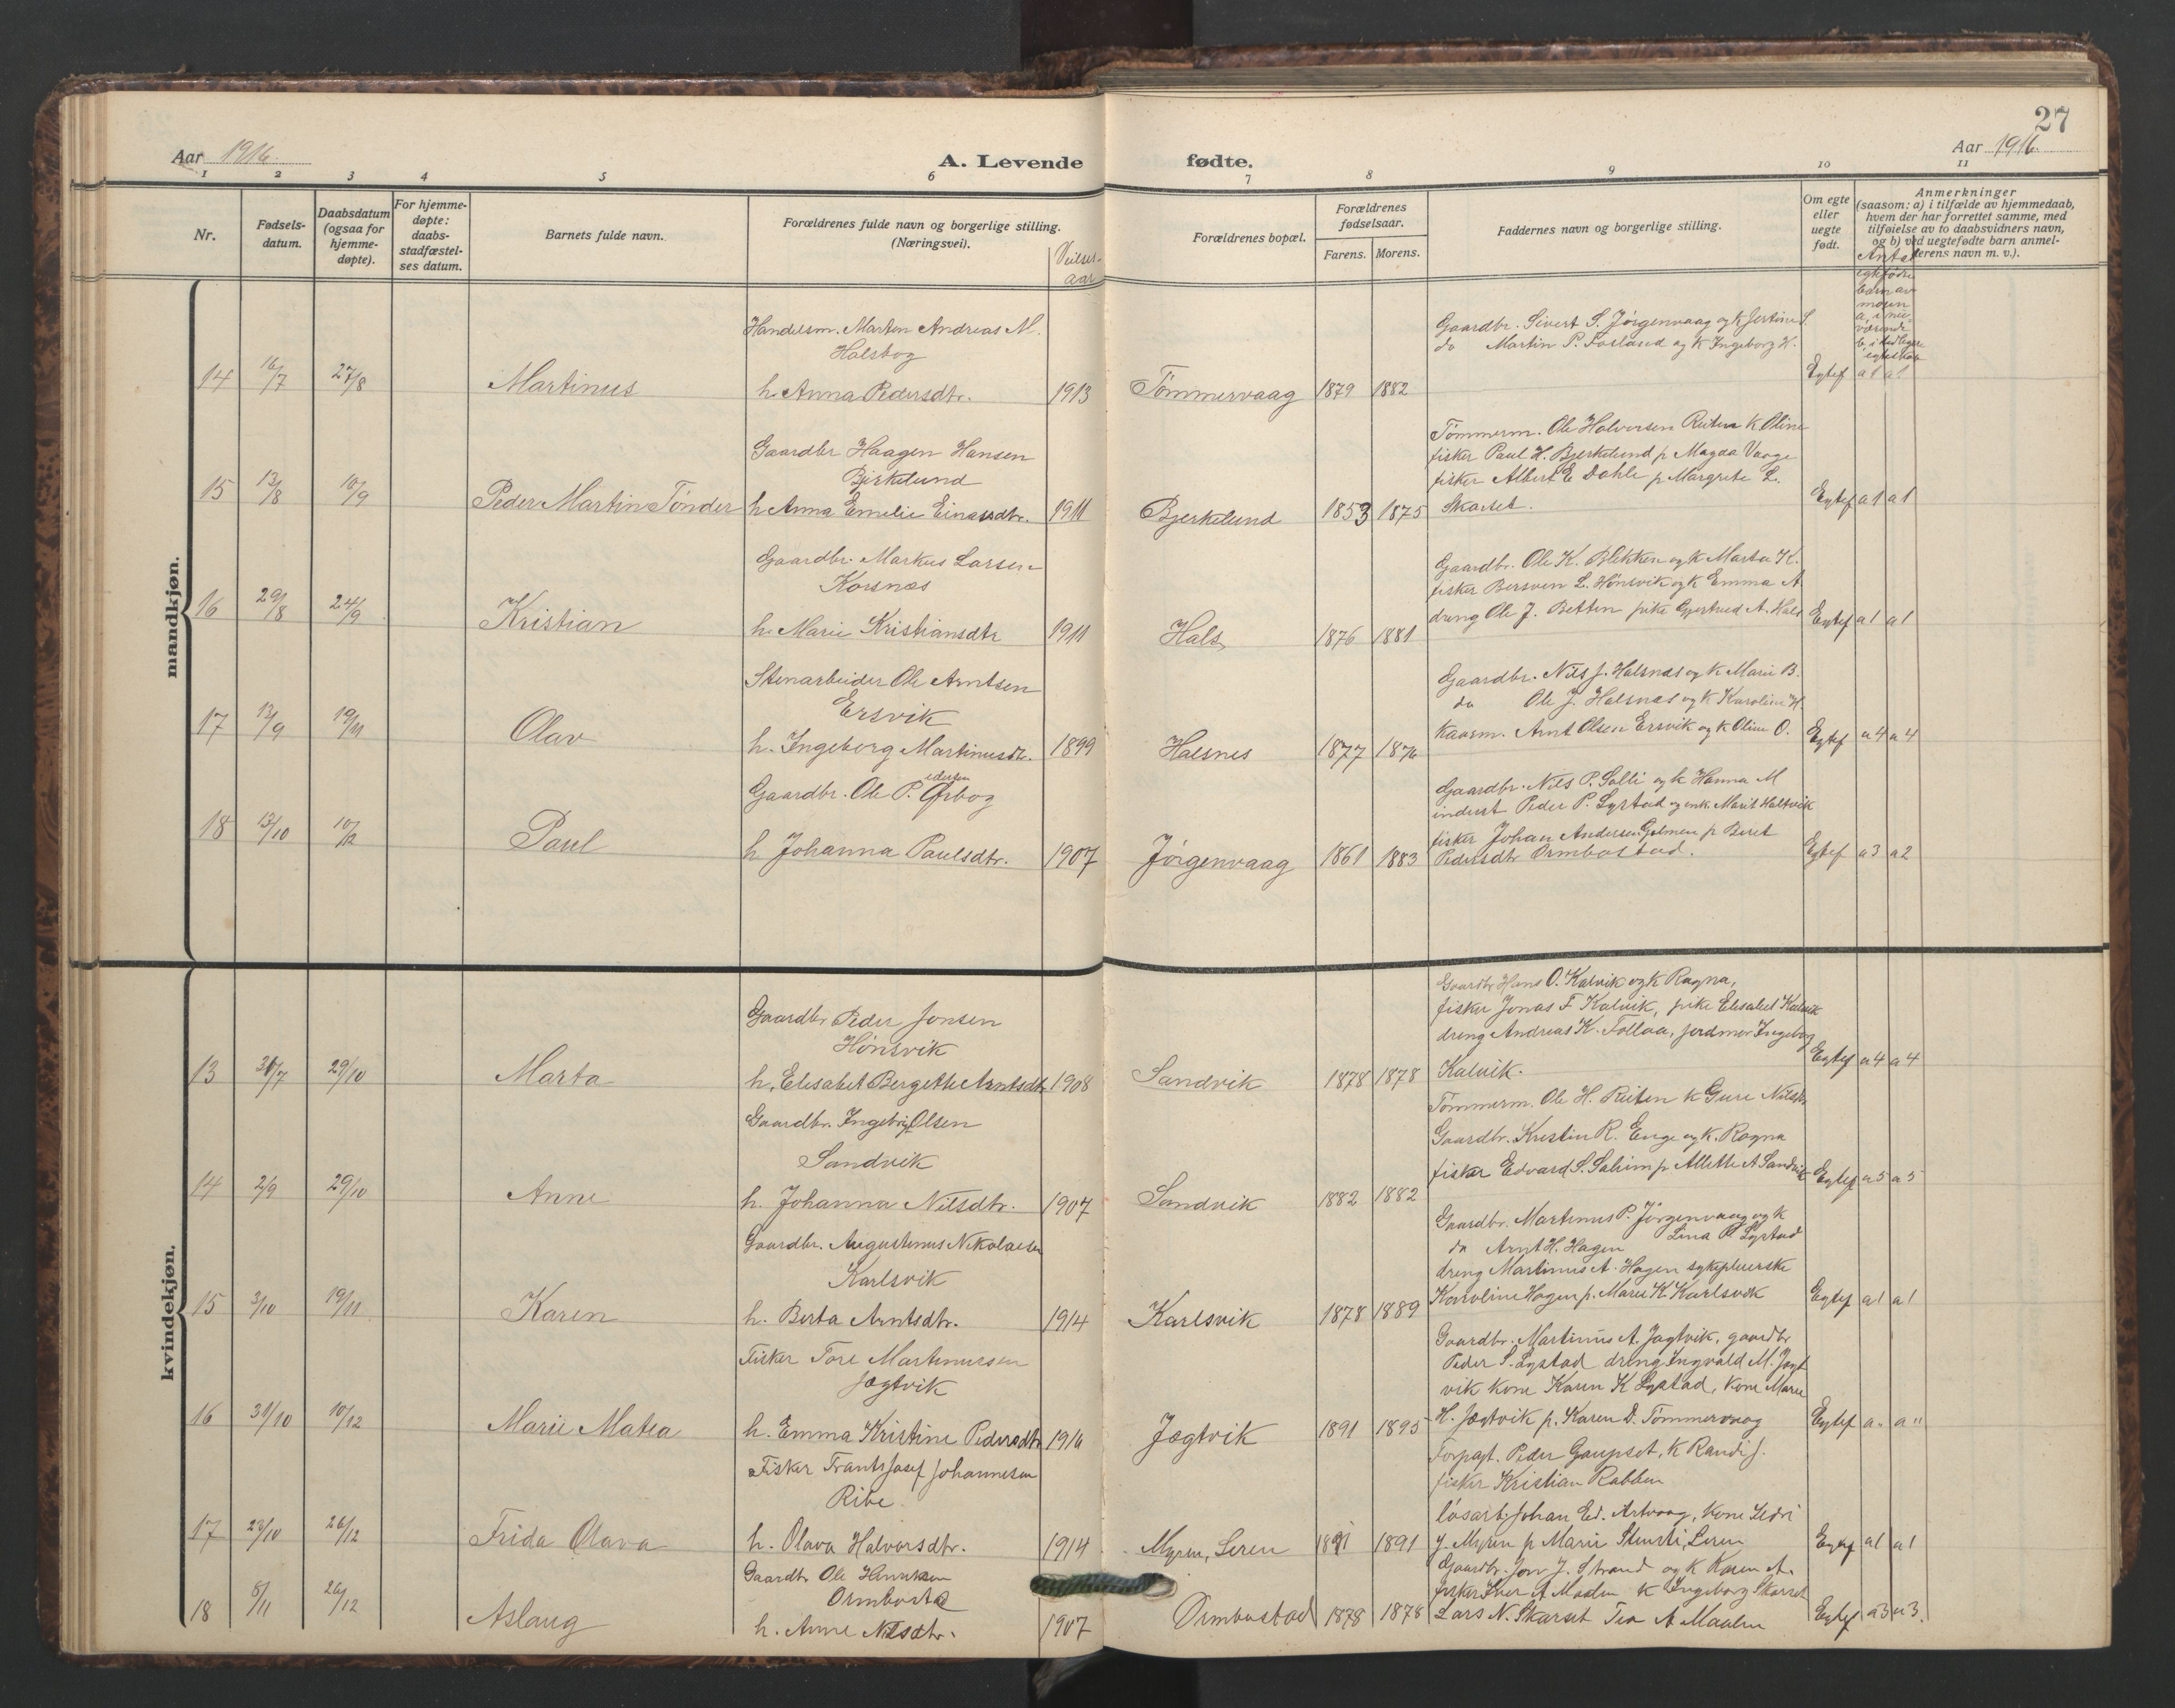 27
Aar 1916.
A. Levende fødte.
Aar 1916.
1 2 3 4 5 6 7 8 9 10 11
Nr.
Fødsels-
datum.
Daabsdatum
(ogsaa for
hjemme-
døpte).
For hjemme-
døpte:
daabs-
stadfæstel-
ses datum.
Barnets fulde navn.
Forældrenes fulde navn og borgerlige stilling.
(Næringsvei).
Vielses-
aar
Forældrenes bopæl.
Forældrenes
fødselsaar.
Farens. Morens.
Faddernes navn og borgerlige stilling.
Om egte
eller
uegte
født.
Anmerkninger
(saasom: a) i tilfælde av hjemmedaab,
hvem der har forrettet samme, med
tilføielse av to daabsvidners navn,
og b) ved uegtefødte barn anmel-
derens navn m. v.).
Antal
egtefødte
barn av
moren
a, i nu-
værende
b, i tidligere
egteskab
mandkjøn.
14 16/7 27/8 Martinus
Handelsm. Marten Andreas M.
Halsbog
h. Anna Pedersdtr. 1913
Tømmervaag 1879 1882
Gaardbr. Sivert S. Jørgenvaag og k Jertine S.
do Martin P. Fosland og k Ingeborg H.
Egtef a1 a1
15 13/8 10/9 Peder Martin Tønder
Gaardbr Haagen Hansen
Bjerkelund
h Anna Emelie Einarsdtr. 1911
Bjerkelund 1853 1875
Tømmerm. Ole Halvorsen Reiten k Oline
fisker Paul H. Bjerkelund p Magda Vaage
fisker Albert E Dahle p Margrete L.
Skarset.
Egtef a1 a1
16 29/8 24/9 Kristian
Gaardbr. Markus Larsen
Korsnæs
h. Marie Kristiansdtr 1911
Hals 1876 1881
Gaardbr. Ole K. Blekken og k Marta K.
fisker Bersven L. Hønsvik og k Emma A
dreng Ole J. Betten pike Gjertrud A. Hals
Egtef a1 a1
17 13/9 19/11 Olav
Stenarbeider Ole Arntsen
Ersvik
h. Ingeborg Martinusdtr. 1899
Halsnes 1877 1876
Gaardbr. Nils J. Halsnæs og k Marie B.
do Ole J. Halsnæs og k Karoline H
Kaarm. Arnt Olsen Ersvik og k Oline O.
Egtef a4 a4
18 13/10 10/12 Paul
Gaardbr. Ole P.edersen Ørbog
h Johanna Paulsdtr. 1907
Jørgenvaag 1861 1883
Gaardbr. Nils P. Solli og k Hanna M
inderst Peder P. Lystad og enk Marit Haltvik
fisker Johan Andersen Gjelmen p Beret
Pedersdtr Ormbostad.
Egtef a3 a2
kvindekjøn.
13 31/7 29/10 Marta
Gaardbr Peder Jonsen
Hønsvik
h. Elisabet Bergette Arntsdtr 1908
Sandvik 1878 1878
Gaardbr Hans O. Kalvik og k Ragna,
fisker Jonas F Kalvik, pike Elisabet Kalvik
dreng Andreas K. Follaa, jordmor Ingeborg
Kalvik.
Egtef a4 a4
14 2/9 29/10 Anne
Gaardbr. Ingebrigt Olsen
Sandvik
h. Johanna Nilsdtr. 1907
Sandvik 1882 1882
Tømmerm. Ole H. Reiten k Gure Nilsdtr
Gaardbr. Kristin R. Enge og k. Ragna
fisker Edvard S. Solheim p Allette A Sandvik
Egtef a5 a5
15 3/10 19/11 Karen
Gaardbr. Augustinus Nikolaisen
Karlsvik
h. Berta Arntsdtr. 1914
Karlsvik 1878 1889
Gaardbr. Martinus P. Jörgenvaag og k
do Arnt H. Hagen Lina P Lystad
dreng Martinus A. Hagen sykepleierske
Karoline Hagen p. Marie K Karlsvik
Egtef a1 a1
16 31/10 10/12 Marie Matea
Fisker Tore Martinussen
Jægtvik
h. Emma Kristine Pedersdtr 1916
Jægtvik 1891 1895
Gaardbr. Martinus A. Jægtvik, gaardbr
Peder S. Lystad dreng Ingvald M. Jægt
vik kone Karen K Lystad, kone Marie
H. Jægtvik p. Karen D. Tømmervaag
Egtef a " a "
17 23/10 26/12 Frida Olava
Fisker Frants Josef Johannesen
Ribe
h. Olava Halvorsdtr. 1914
Myren, Leren 1891 1891
Forpagt. Peder Gaupset, k Randi J.
fisker Kristian Rabben
løsarb. Johan Ed. Artvaag, kone
J. Myren p Marie Stensli, Leren
Egtef a1 a1
18 8/11 26/12 Aslaug
Gaardbr Ole Henriksen
Ormbostad
h. Anne Nilsdtr. 1907
Ormbostad 1878 1878
Gaardbr. Jon J. Strand og k Karen A.
fisker Iver A Maalen k Ingeborg Skarset
Lars N. Skarset Tea A Maalen
Egtef a3 a3.